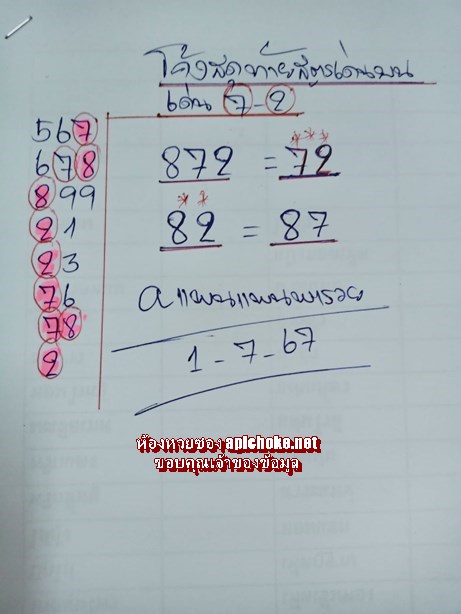 โค้งสุดท้ายสูตรเด่นบน
เด่น 7-2
567
678
899
21
23
76
78
2
872 = 72
82 = 87
1-7-67
ห้องหวยของ apichoke.net
ขอบคุณเจ้าของข้อมูล